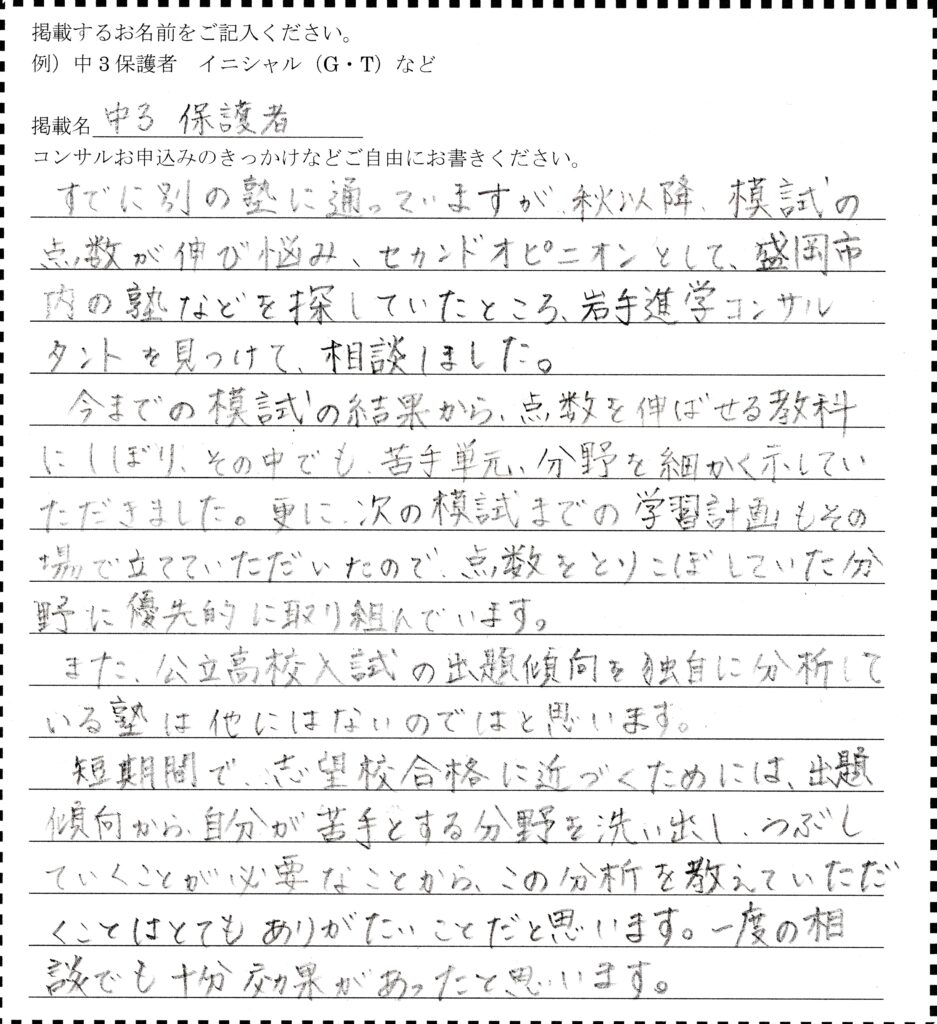 掲載するお名前をご記入ください。
例）中３保護者　イニシャル（G・T）など
掲載名 中3 保護者
コンサルお申込みのきっかけなどご自由にお書きください。
すでに別の塾に通っていますが、秋以降、模試の
点数が伸び悩み、セカンドオピニオンとして、盛岡市
内の塾などを探していたところ、岩手進学コンサル
タントを見つけて、相談しました。
今までの模試の結果から、点数を伸ばせる教科
にしぼり、その中でも、苦手単元、分野を細かく示してい
ただきました。更に、次の模試までの学習計画もその
場で立てていただいたので、点数をとりこぼしていた分
野に優先的に取り組んでいます。
また、公立高校入試の出題傾向を独自に分析して
いる塾は他にはないのではと思います。
短期間で、志望校合格に近づくためには、出題
傾向から、自分が苦手とする分野を洗い出し、つぶし
ていくことが必要なことから、この分析を教えていただ
くことはとてもありがたいことだと思います。一度の相
談でも十分効果があったと思います。